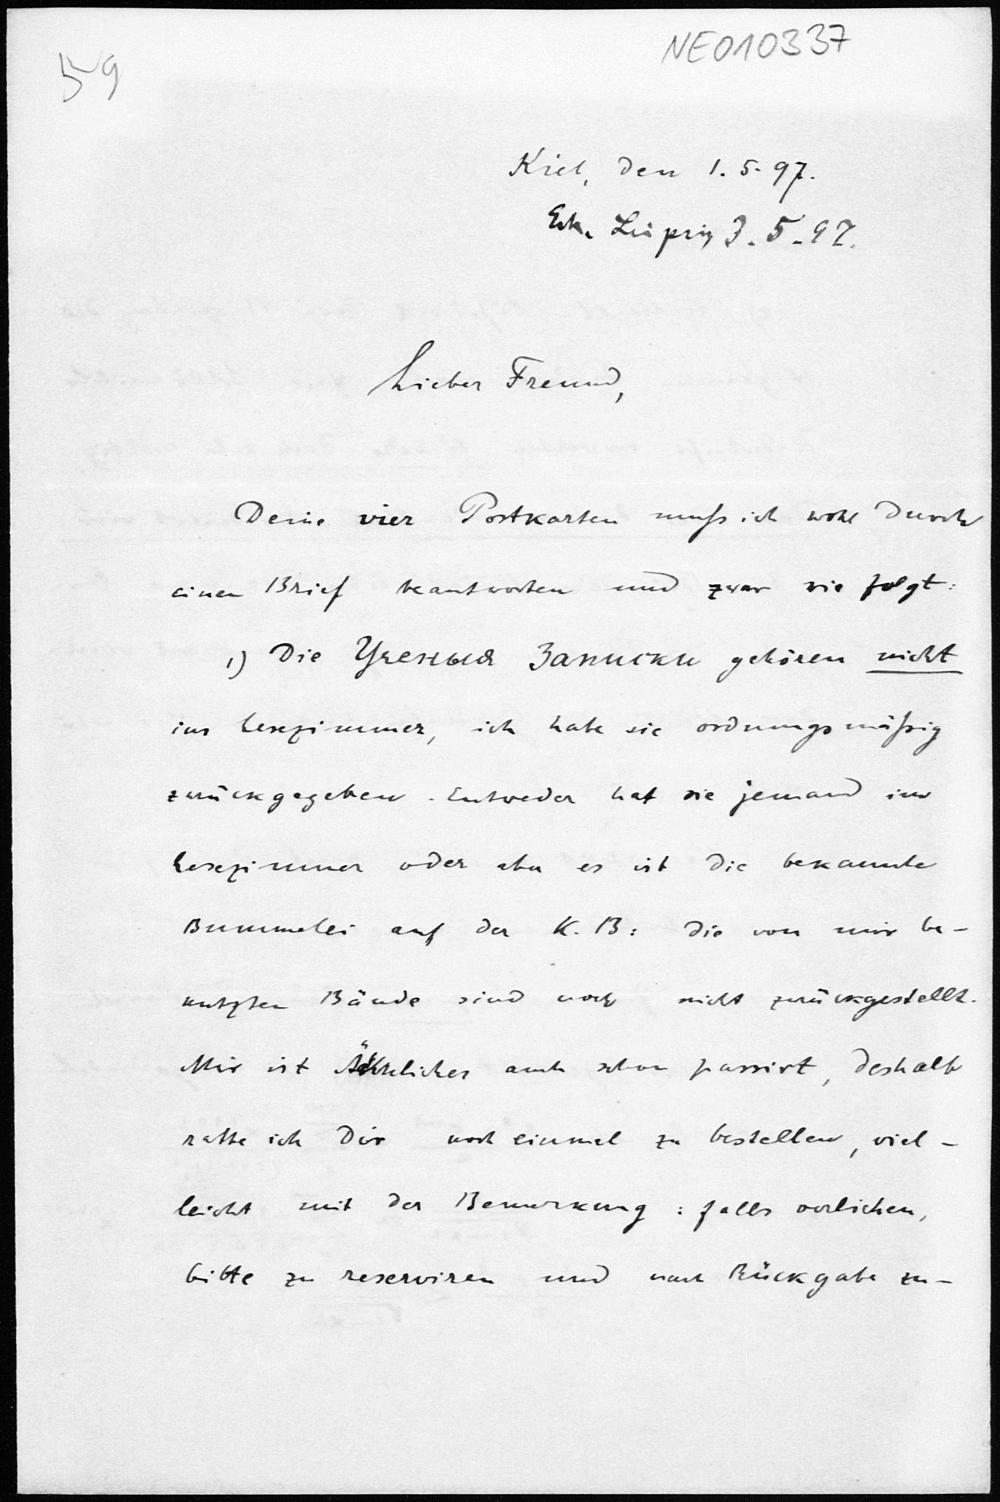 59
NE010337
Kiel, den 1.5.97.
Erh. Leipzig 3.5.97.
Lieber Freund,
Deine vier Postkarten muſs ich wohl durch
einen Brief beantworten und zwar wie folgt:
1) Die Ученыя Записки gehören nicht
ins Lesezimmer, ich habe sie ordnungsmäſsig
zurückgegeben. Entweder hat sie jemand im
Lesezimmer oder aber es ist die bekannte
Bummelei auf der K.B: die von mir be-
nutzten Bände sind noch nicht zurückgestellt.
Mir ist Ähnliches auch schon passirt, deshalb
rathe ich Dir noch einmal zu bestellen, viel-
leicht mit der Bemerkung: falls verliehen,
bitte zu reserviren und nach Rückgabe zu-